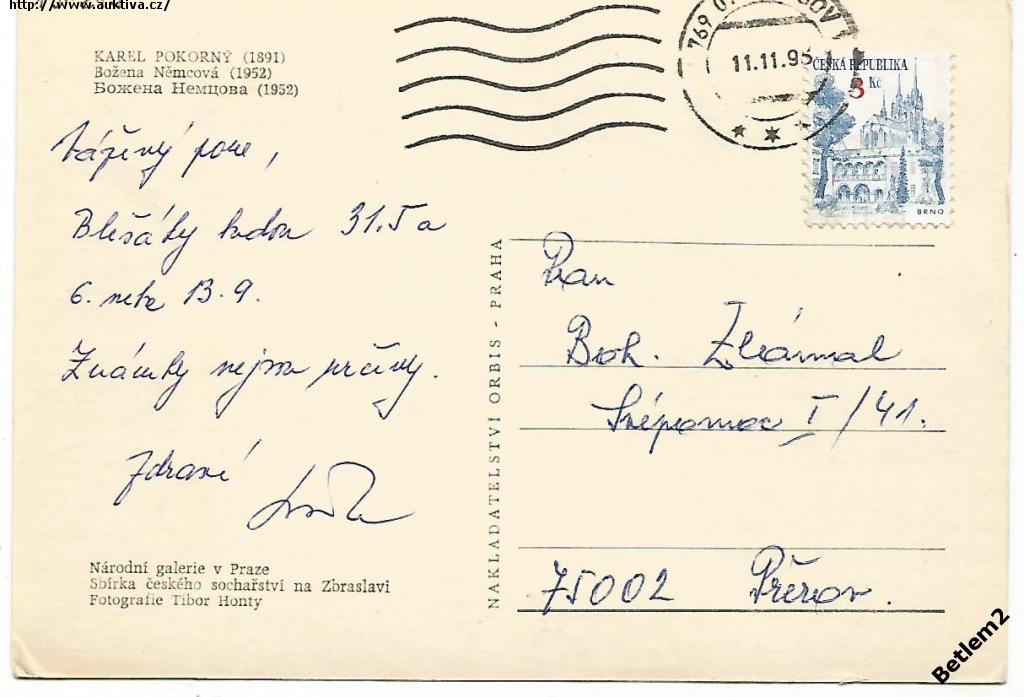 http://www.auktiva.cz/
KAREL POKORNÝ (1891)
Božena Němcová (1952)
Божена Немцова (1952)
11.11.98
ČESKÁ REPUBLIKA
3 Kč
BRNO
Vážený pane,
31.5 a
6. 13.9.
Známky nejsou
Zdraví
Národní galerie v Praze
Sbírka českého sochařství na Zbraslavi
Fotografie Tibor Honty
NAKLADATELSTVÍ ORBIS - PRAHA
Pan
Boh. Zhánal
Svépomoc I/41.
75002 Přerov.
Betlem2